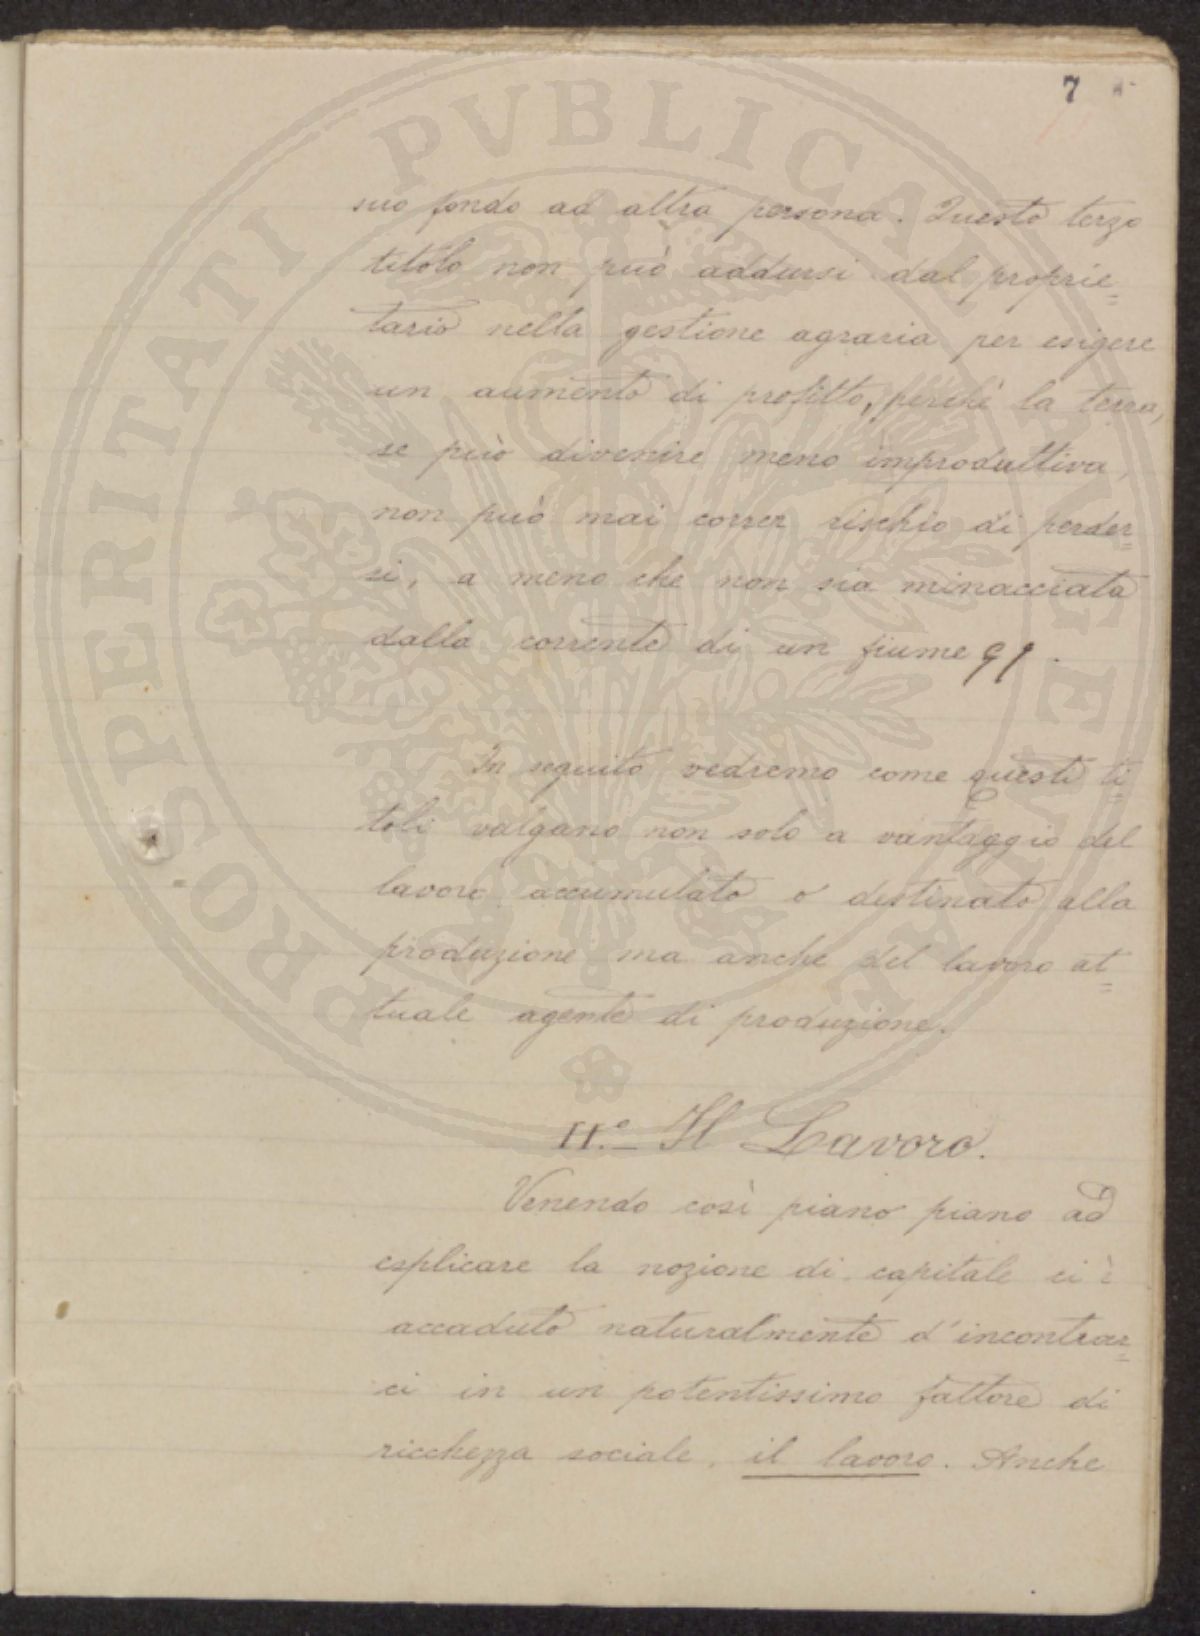 7
suo fondo ad altra persona. Questo terzo
titolo non può addursi dal proprie=
tario nella gestione agraria per esigere
un aumento di profitto, perchè la terra,
se può divenire meno improduttiva,
non può mai correr rischio di perder=
si, a meno che non sia minacciata
dalla corrente di un fiume
In seguito vedremo come questi ti=
toli valgano non solo a vantaggio del
lavoro accumulato o destinato alla
produzione ma anche del lavoro at=
tuale agente di produzione.
II.º Il Lavoro.
Venendo così piano piano ad
esplicare la nozione di capitale ci è
accaduto naturalmente d'incontrar=
ci in un potentissimo fattore di
ricchezza sociale, il lavoro. Anche
PROSPERITATI PVBLICAE AVGENDAE